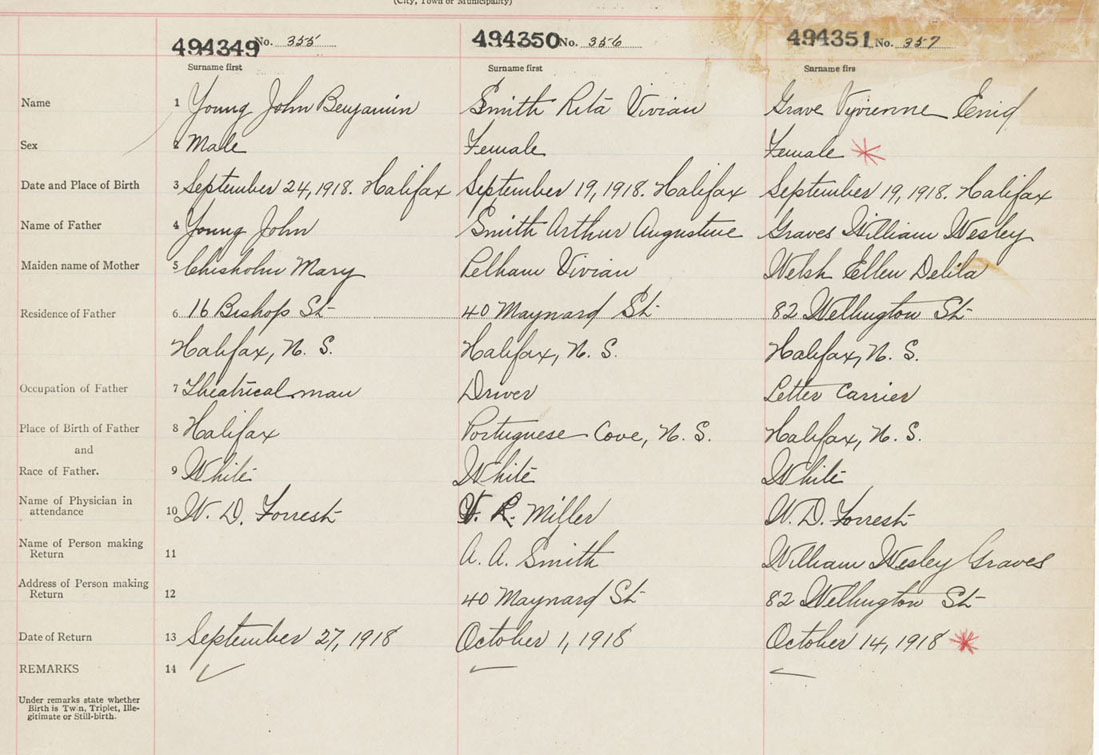 (City, Town or Municipality)
494349 No. 355 494350 No. 356 494351 No. 357
Surname first Surname first Surname firs
Name 1 Young John Benjamin Smith Rita Vivian Grave Vyvienne Enid
Sex 2 Male Female Female *
Date and Place of Birth 3 September 24, 1918. Halifax September 19, 1918. Halifax September 19, 1918. Halifax
Name of Father 4 Young John Smith Arthur Augustine Graves William Wesley
Maiden name of Mother 5 Chisholm Mary Pelham Vivian Welsh Ellen Delila
Residence of Father 6 16 Bishop St 40 Maynard St 82 Wellington St
Halifax, N. S. Halifax, N. S. Halifax, N. S.
Occupation of Father 7 Theatrical man Driver Letter Carrier
Place of Birth of Father 8 Halifax Portuguese Cove, N. S. Halifax, N. S.
and
Race of Father. 9 White White White
Name of Physician in
attendance 10 W. D. Forrest V. R. Miller W. D. Forrest
Name of Person making
Return 11 A. A. Smith William Wesley Graves
Address of Person making
Return 12 40 Maynard St 82 Wellington St
Date of Return 13 September 27, 1918 October 1, 1918 October 14, 1918 *
REMARKS 14
Under remarks state whether
Birth is Twin, Triplet, Ille-
gitimate or Still-birth.